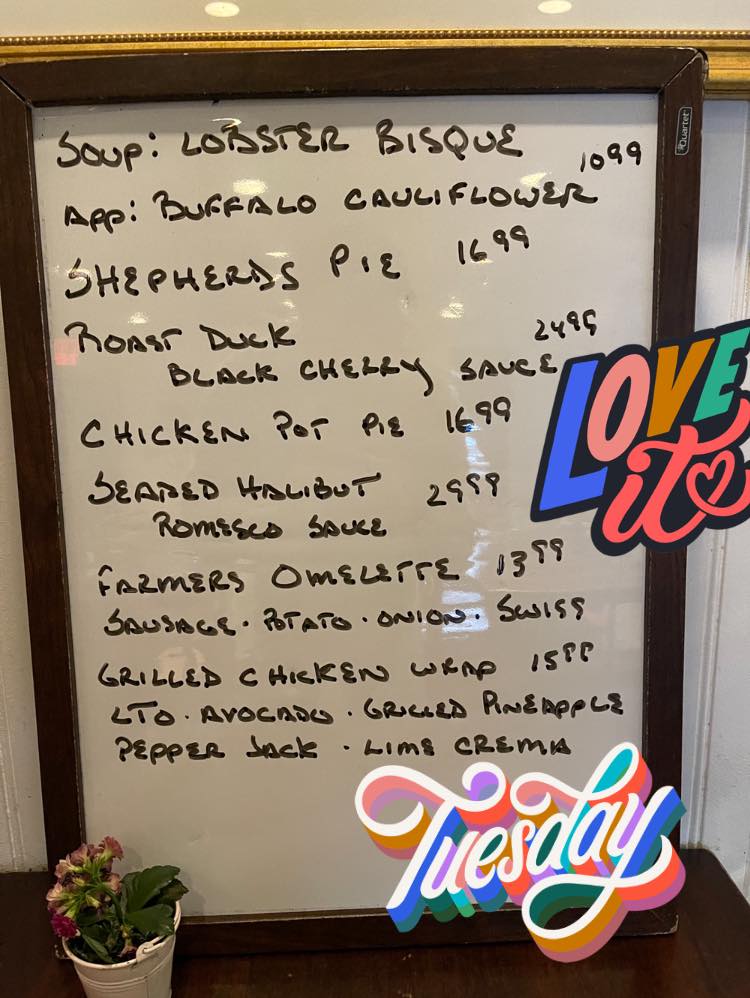 Quartet
SOUP: LOBSTER BISQUE
APP: BUFFALO CAULIFLOWER 10 99
SHEPHERDS PIE 16 99
ROAST DUCK 24 99
BLACK CHERRY SAUCE
CHICKEN POT PIE 16 99
SEARED HALIBUT 29 99
ROMESCO SAUCE
FARMERS OMELETTE 13 99
SAUSAGE · POTATO · ONION · SWISS
GRILLED CHICKEN WRAP 15 99
LTO · AVOCADO · GRILLED PINEAPPLE
PEPPER JACK · LIME CREMA
LOVE
it
Tuesday